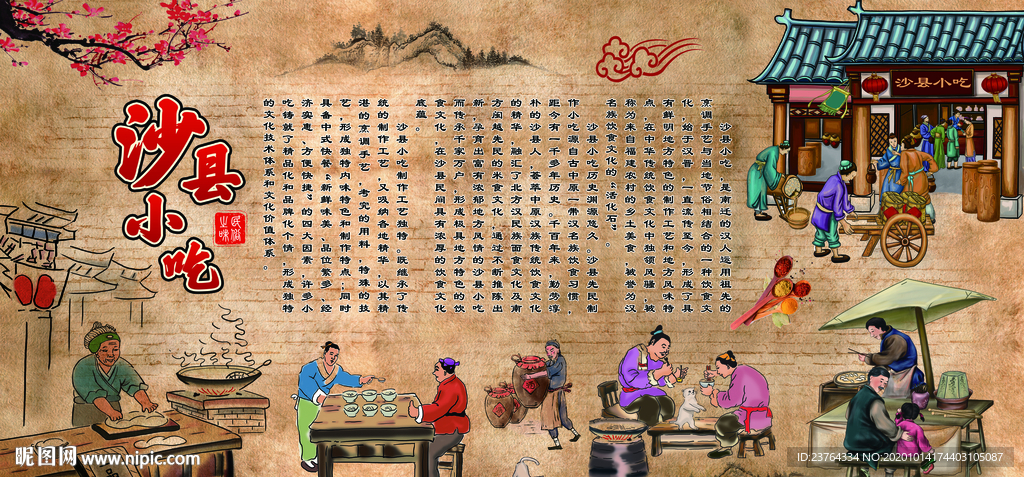 沙县小吃
沙县小吃，是南迁的汉人运用祖先的
烹调手艺与当地节俗相结合的一种饮食文
化，始于汉晋，一直流传至今，形成了具
有鲜明地方特色的制作工艺和地方风味特
点，在中华传统饮食文化中独领风骚，被
称为来自福建农村的乡土美食，被誉为汉
名族饮食文化的“活化石”。
沙县小吃历史渊源悠久。沙县先民制
作小吃源自古中原一带汉名族饮食习惯，
距今有一千多年历史。千百年来，勤劳淳
朴的沙县人，荟萃中原汉族传统饮食文化
的精华，融汇了北方汉民族面食文化及南
方闽越先民的米食文化，通过不断推陈出
新，孕育出富有浓郁地方风情的沙县小吃
而传承千家万户，形成独具地方特色的饮
食文化，在沙县民间具有浓厚的饮食文化
底蕴。
沙县小吃制作工艺独特。既继承了传
统的制作工艺，又吸纳各地精华，以其精
湛的烹调手艺，考究的用料，特殊的技
艺，形成独特内味特色和制作特点；同时
具备中式快餐“新鲜味美，品位繁多，经
济实惠，方便快捷”的四大因素，许多小
吃铸就了精品化和品牌化个情，形成独特
的文化技术体系和文化价值体系。
沙县小吃
民俗
之味
昵图网 www.nipic.com
ID:23764334 NO:20201014174403105087